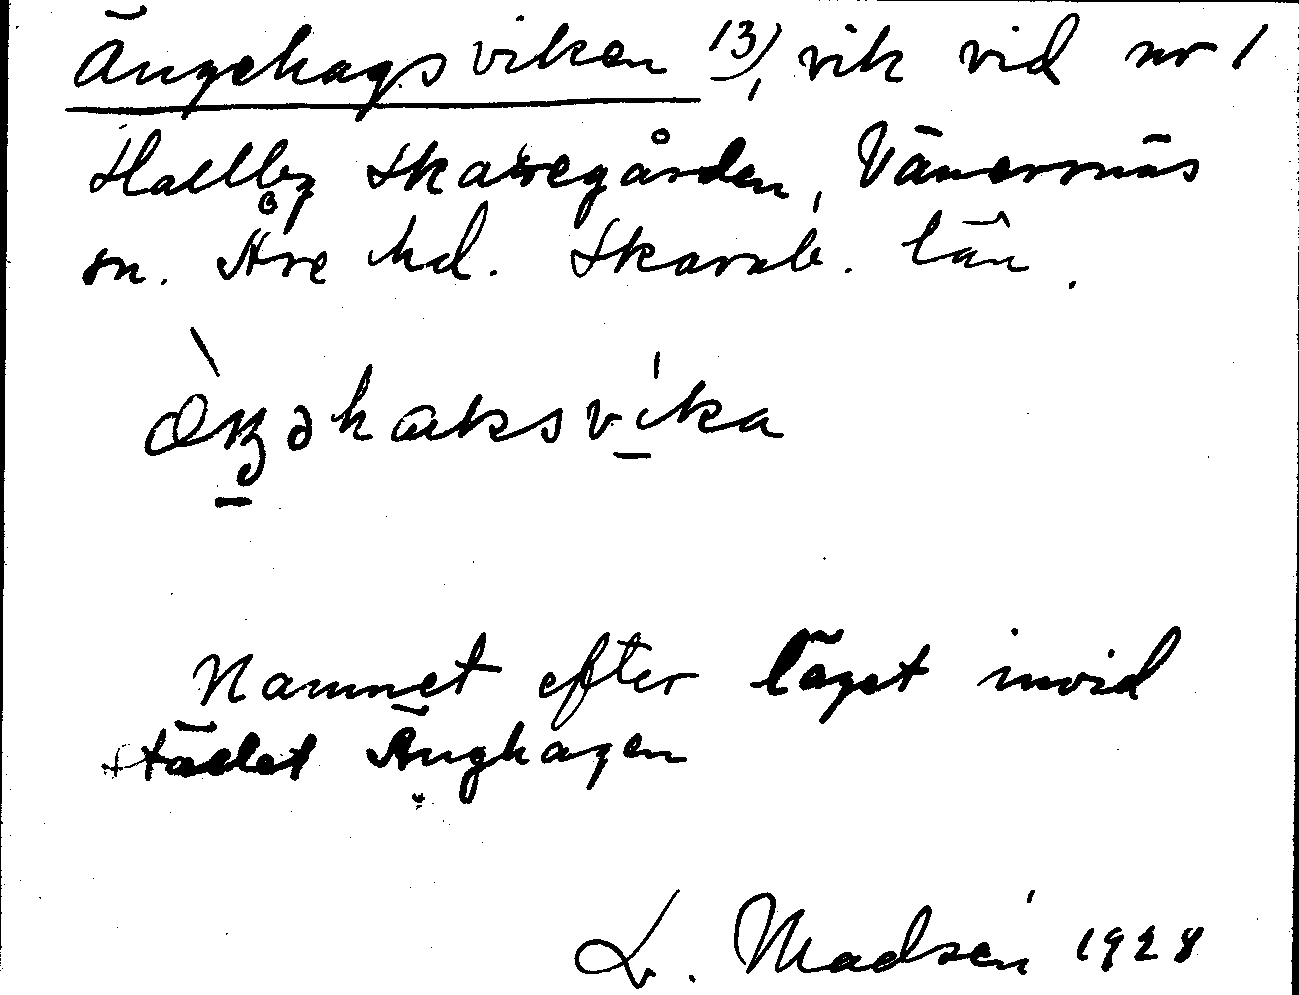 Ängehagsviken 13), vik vid nr 1
Hallby Skaregården, Vänersnäs
sn. Åre hd. Skarab. län.
haksvika
Namnet efter läget invid
stället Änghagen
L. Madsén 1928